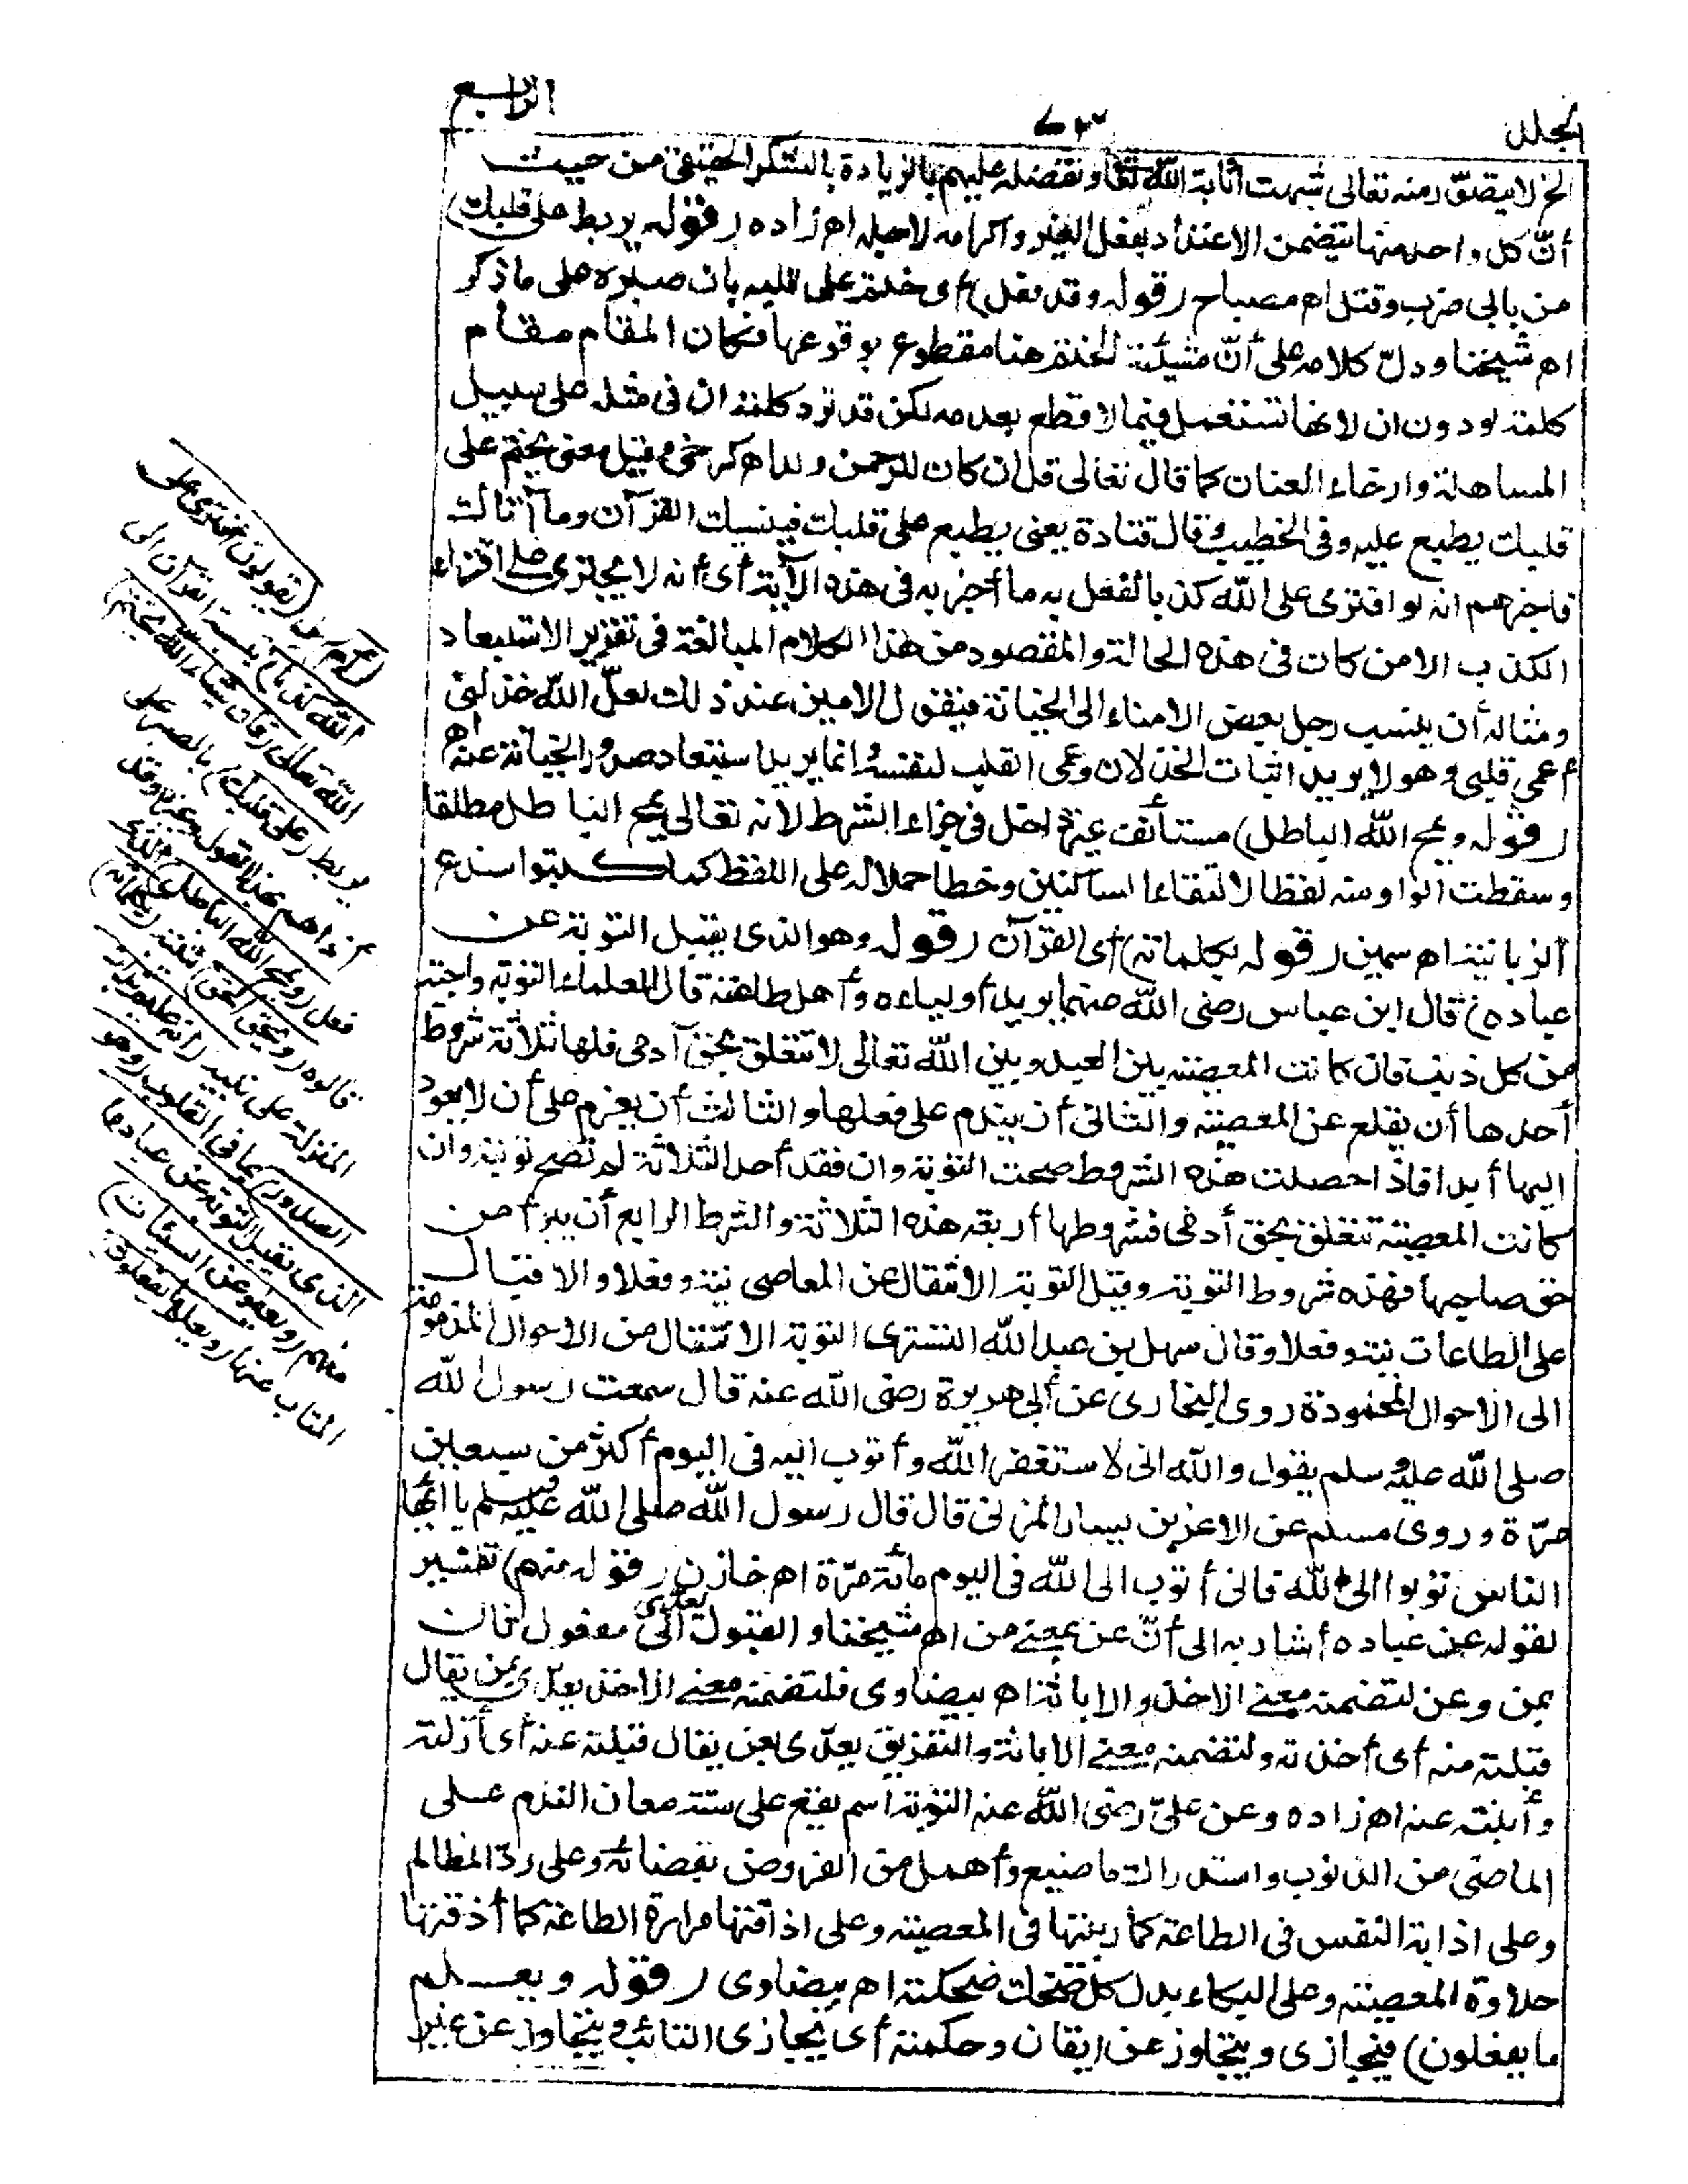 المجلد
٧٣
الرابع
الخ لا يتصوّر منه تعالى شبهت اثابة الله تعالى وتفضله عليهم بالزيادة بالشكر الحقيقى من حيث
أنّ كل واحد منهما يتضمن الاعتداد بفعل الغير واكرامه لاجله اه زاده (قوله يربط على قلبك)
من بابى ضرب وقتل اه مصباح (قوله وقد فعل) أى ختم على قلبه بان صبره على ما ذكر
اه شيخنا ودلّ كلامه على أنّ مشيئة الختم هنا مقطوع بوقوعها فكان المقام مقام
كلمة لو دون ان لانها تستعمل فيما لا قطع بعدمه لكن قد ترد كلمة ان فى مثله على سبيل
المساهلة وارخاء العنان كما قال تعالى قل ان كان للرحمن ولد اه كرخى وقيل معنى يختم على
قلبك يطبع عليه وفى الخطيب وقال قتادة يعنى يطبع على قلبك فينسيك القرآن وما آتاك
فاخبرهم انه لو افترى على الله كذبا لفعل به ما أخبر به فى هذه الآية أى أنه لا يجترى على افتراء
الكذب الا من كان فى هذه الحالة والمقصود من هذا الكلام المبالغة فى تقرير الاستبعاد
ومثاله أن ينسب رجل بعض الامناء الى الخيانة فيقول الامين عند ذلك لعلّ الله خذلنى
أعمى قلبى وهو لا يريد اثبات الخذلان وعمى القلب لنفسه وانما يريد استبعاد صدور الخيانة عنه اه
(قوله ويمح الله الباطل) مستأنف غير داخل فى جزاء الشرط لانه تعالى يمحو الباطل مطلقا
وسقطت الواو منه لفظا لالتقاء الساكنين وخطا حملا له على اللفظ كما كتبوا سندع
الزبانية اه سمين (قوله بكلماته) أى القرآن (قوله وهو الذى يقبل التوبة عن
عباده) قال ابن عباس رضى الله عنهما يريد أولياءه وأهل طاعته قال العلماء التوبة واجبة
من كل ذنب فان كانت المعصية بين العبد وبين الله تعالى لا تتعلق بحق آدمى فلها ثلاثة شروط
أحدها أن يقلع عن المعصية والثانى أن يندم على فعلها والثالث أن يعزم على أن لا يعود
اليها أبدا فاذا حصلت هذه الشروط صحت التوبة وان فقد أحد الثلاثة لم تصح توبته وان
كانت المعصية تتعلق بحق أدمى فشروطها أربعة هذه الثلاثة والشرط الرابع أن يبرأ من
حق صاحبها فهذه شروط التوبة وقيل التوبة الانتقال عن المعاصى نية وفعلا والاقبال
على الطاعات نية وفعلا وقال سهل بن عبد الله التسترى التوبة الانتقال من الاحوال المذمومة
الى الاحوال المحمودة روى البخارى عن أبى هريرة رضى الله عنه قال سمعت رسول الله
صلى الله عليه وسلم يقول والله انى لاستغفر الله وأتوب اليه فى اليوم أكثر من سبعين
مرّة وروى مسلم عن الاغر بن يسار المزنى قال قال رسول الله صلى الله عليه وسلم يا ايها
الناس توبوا الى الله فانى أتوب الى الله فى اليوم مائة مرّة اه خازن (قوله منهم) تفسير
لقوله عن عباده أشار به الى أنّ عن بمعنى من اه شيخنا والقبول يعدى الى مفعول ثان
بمن وعن لتضمنه معنى الاخذ والابانة اه بيضاوى فلتضمنه معنى الاخذ يعدى بمن يقال
قبلته منه أى أخذته ولتضمنه معنى الابانة والتفريق يعدّى بعن يقال قبلته عنه أى أزلته
وأبنته عنه اه زاده وعن علىّ رضى الله عنه التوبة اسم يقع على ستة معان الندم على
الماضى من الذنوب واستدراك ما ضيع وأهمل من الفروض بقضائه وعلى ردّ المظالم
وعلى اذابة النفس فى الطاعة كما ربيتها فى المعصية وعلى اذاقتها مرارة الطاعة كما أذقتها
حلاوة المعصية وعلى البكاء بدل كل ضحك ضحكته اه بيضاوى (قوله ويعلم
ما يفعلون) فيجازى ويتجاوز عن ايقان وحكمة أى يجازى التائب ويتجاوز عن غير
(يقولون افترى على
الله كذبا) بنسبة القرآن الى
الله تعالى (فان يشا الله يختم)
يربط (على قلبك) بالصبر على
أذاهم بهذا القول وغيره وقد
فعل (ويمح الله الباطل) الذى
قالوه (ويحق الحق) يثبته (بكلماته)
المنزلة على نبيه (انه عليم بذات
الصدور) بما فى القلوب (وهو
الذى يقبل التوبة عن عباده)
منهم (ويعفو عن السيئات)
المتاب عنها (ويعلم ما يفعلون)